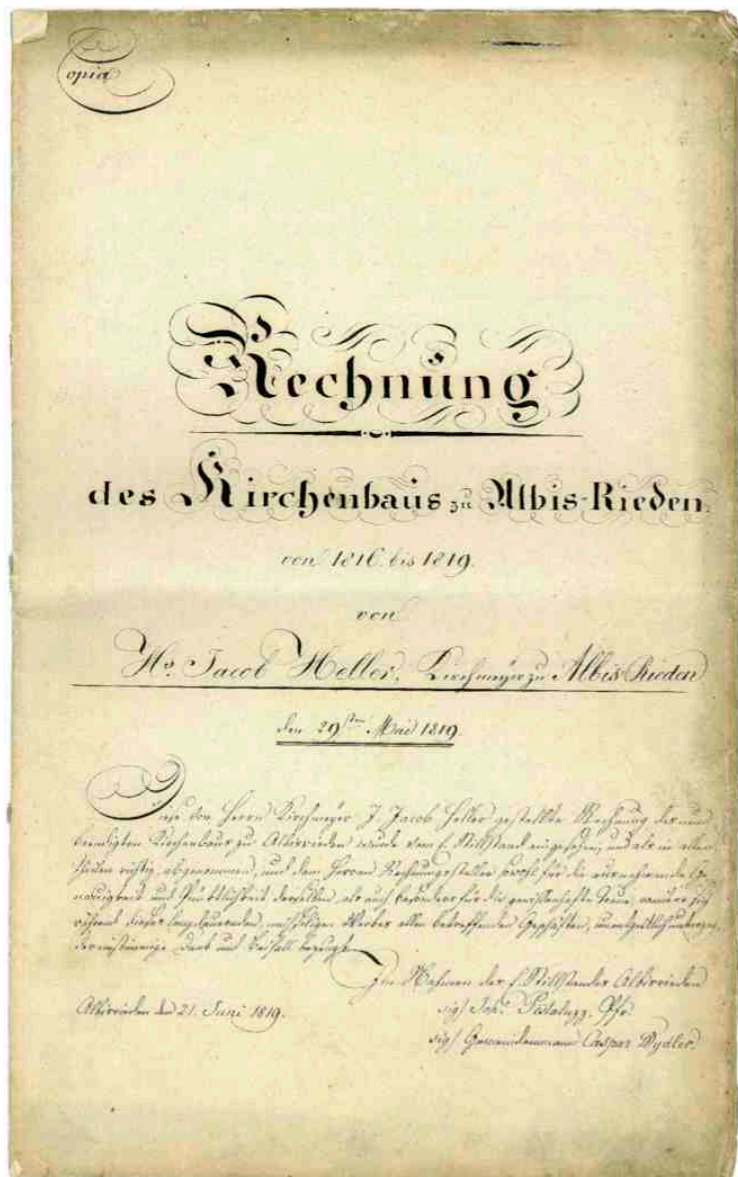 Copia
Rechnüng
des Kirchenbaüs zu Albis-Rieden.
von 1816. bis 1819.
von
Hs. Jacob Heller, Kirchmeyer zu Albis Rieden
den 29sten Mai 1819.
Diese von Herrn Kirchmeyer J. Jacob Heller gestellte Rechnung des nun
beendigten Kirchenbaus zu Albisrieden wurde vom l. Stillstand eingesehen, und als in allen
Theilen richtig, abgenommen, und dem Herren Rechnungssteller sowohl für die ausnehmende Ge-
nauigkeit und Pünktlichkeit derselben, als auch besonders für die gewissenhafte Treue, womit er sich
während dieses langdaurenden, mühseligen Werkes allen betreffenden Geschäften, unentgeltlich unterzog,
der einstimmige Dank und Beifall bezeugt.
Im Nahmen des l. Stillstandes Albisrieden
Albisrieden den 21. Juni 1819.
sig/ Joh. Pestaluzz, Pfr.
sig/ Gemeindammann Caspar Wydler.